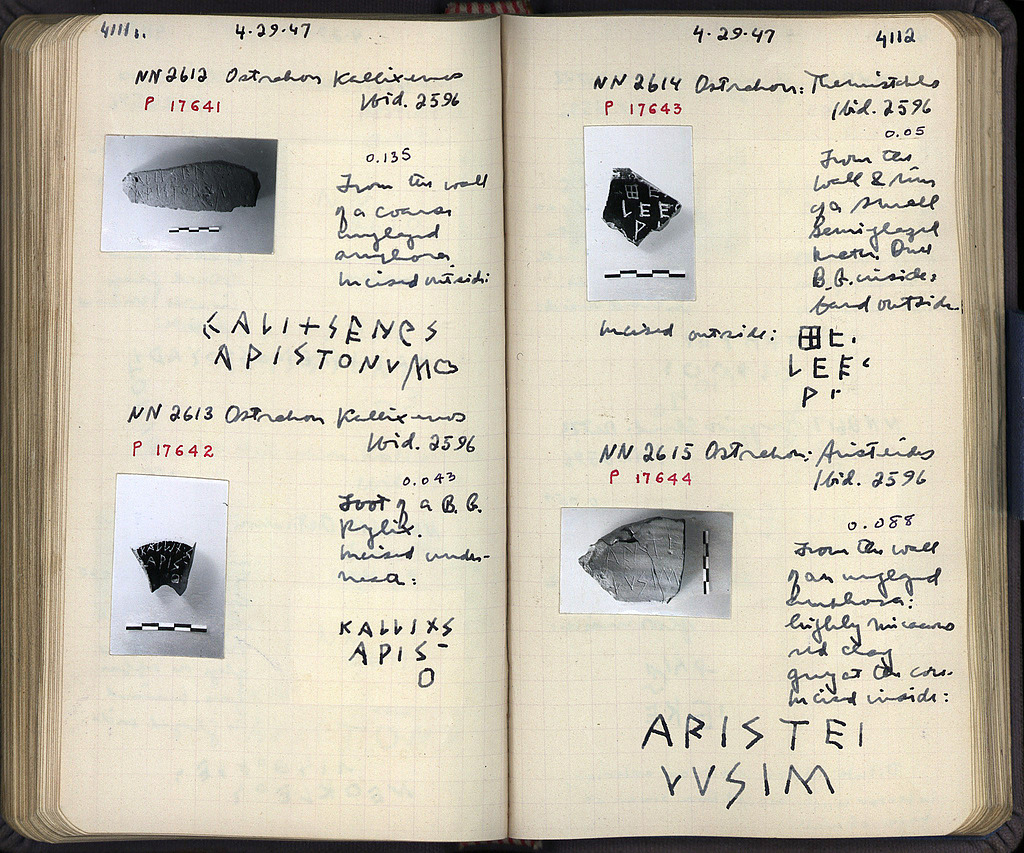 4111.
4-29-47
NN 2612 Ostrakon Kallixenos
P 17641
Ibid. 2596
0.135
From the wall
of a coarse
unglazed
amphora.
Incised outside:
KALI+SENOS
APISTONVMO
NN 2613 Ostrakon Kallixenos
P 17642
Ibid. 2596
0.043
Foot of a B.G.
Kylix.
Incised under-
neath:
KALLIXS
APIS-
O
4-29-47
4112
NN 2614 Ostrakon: Themistokles
P 17643
Ibid. 2596
0.05
From the
wall & rim
of a small
Semiglazed
krater. Dull
B.G. inside;
band outside.
Incised outside:
⊞E.
LEE
PI
NN 2615 Ostrakon: Aristeides
P 17644
Ibid. 2596
0.088
From the wall
of an unglazed
amphora:
highly micaceous
red clay
grey at the core.
Incised inside:
ARISTEI
VVSIM